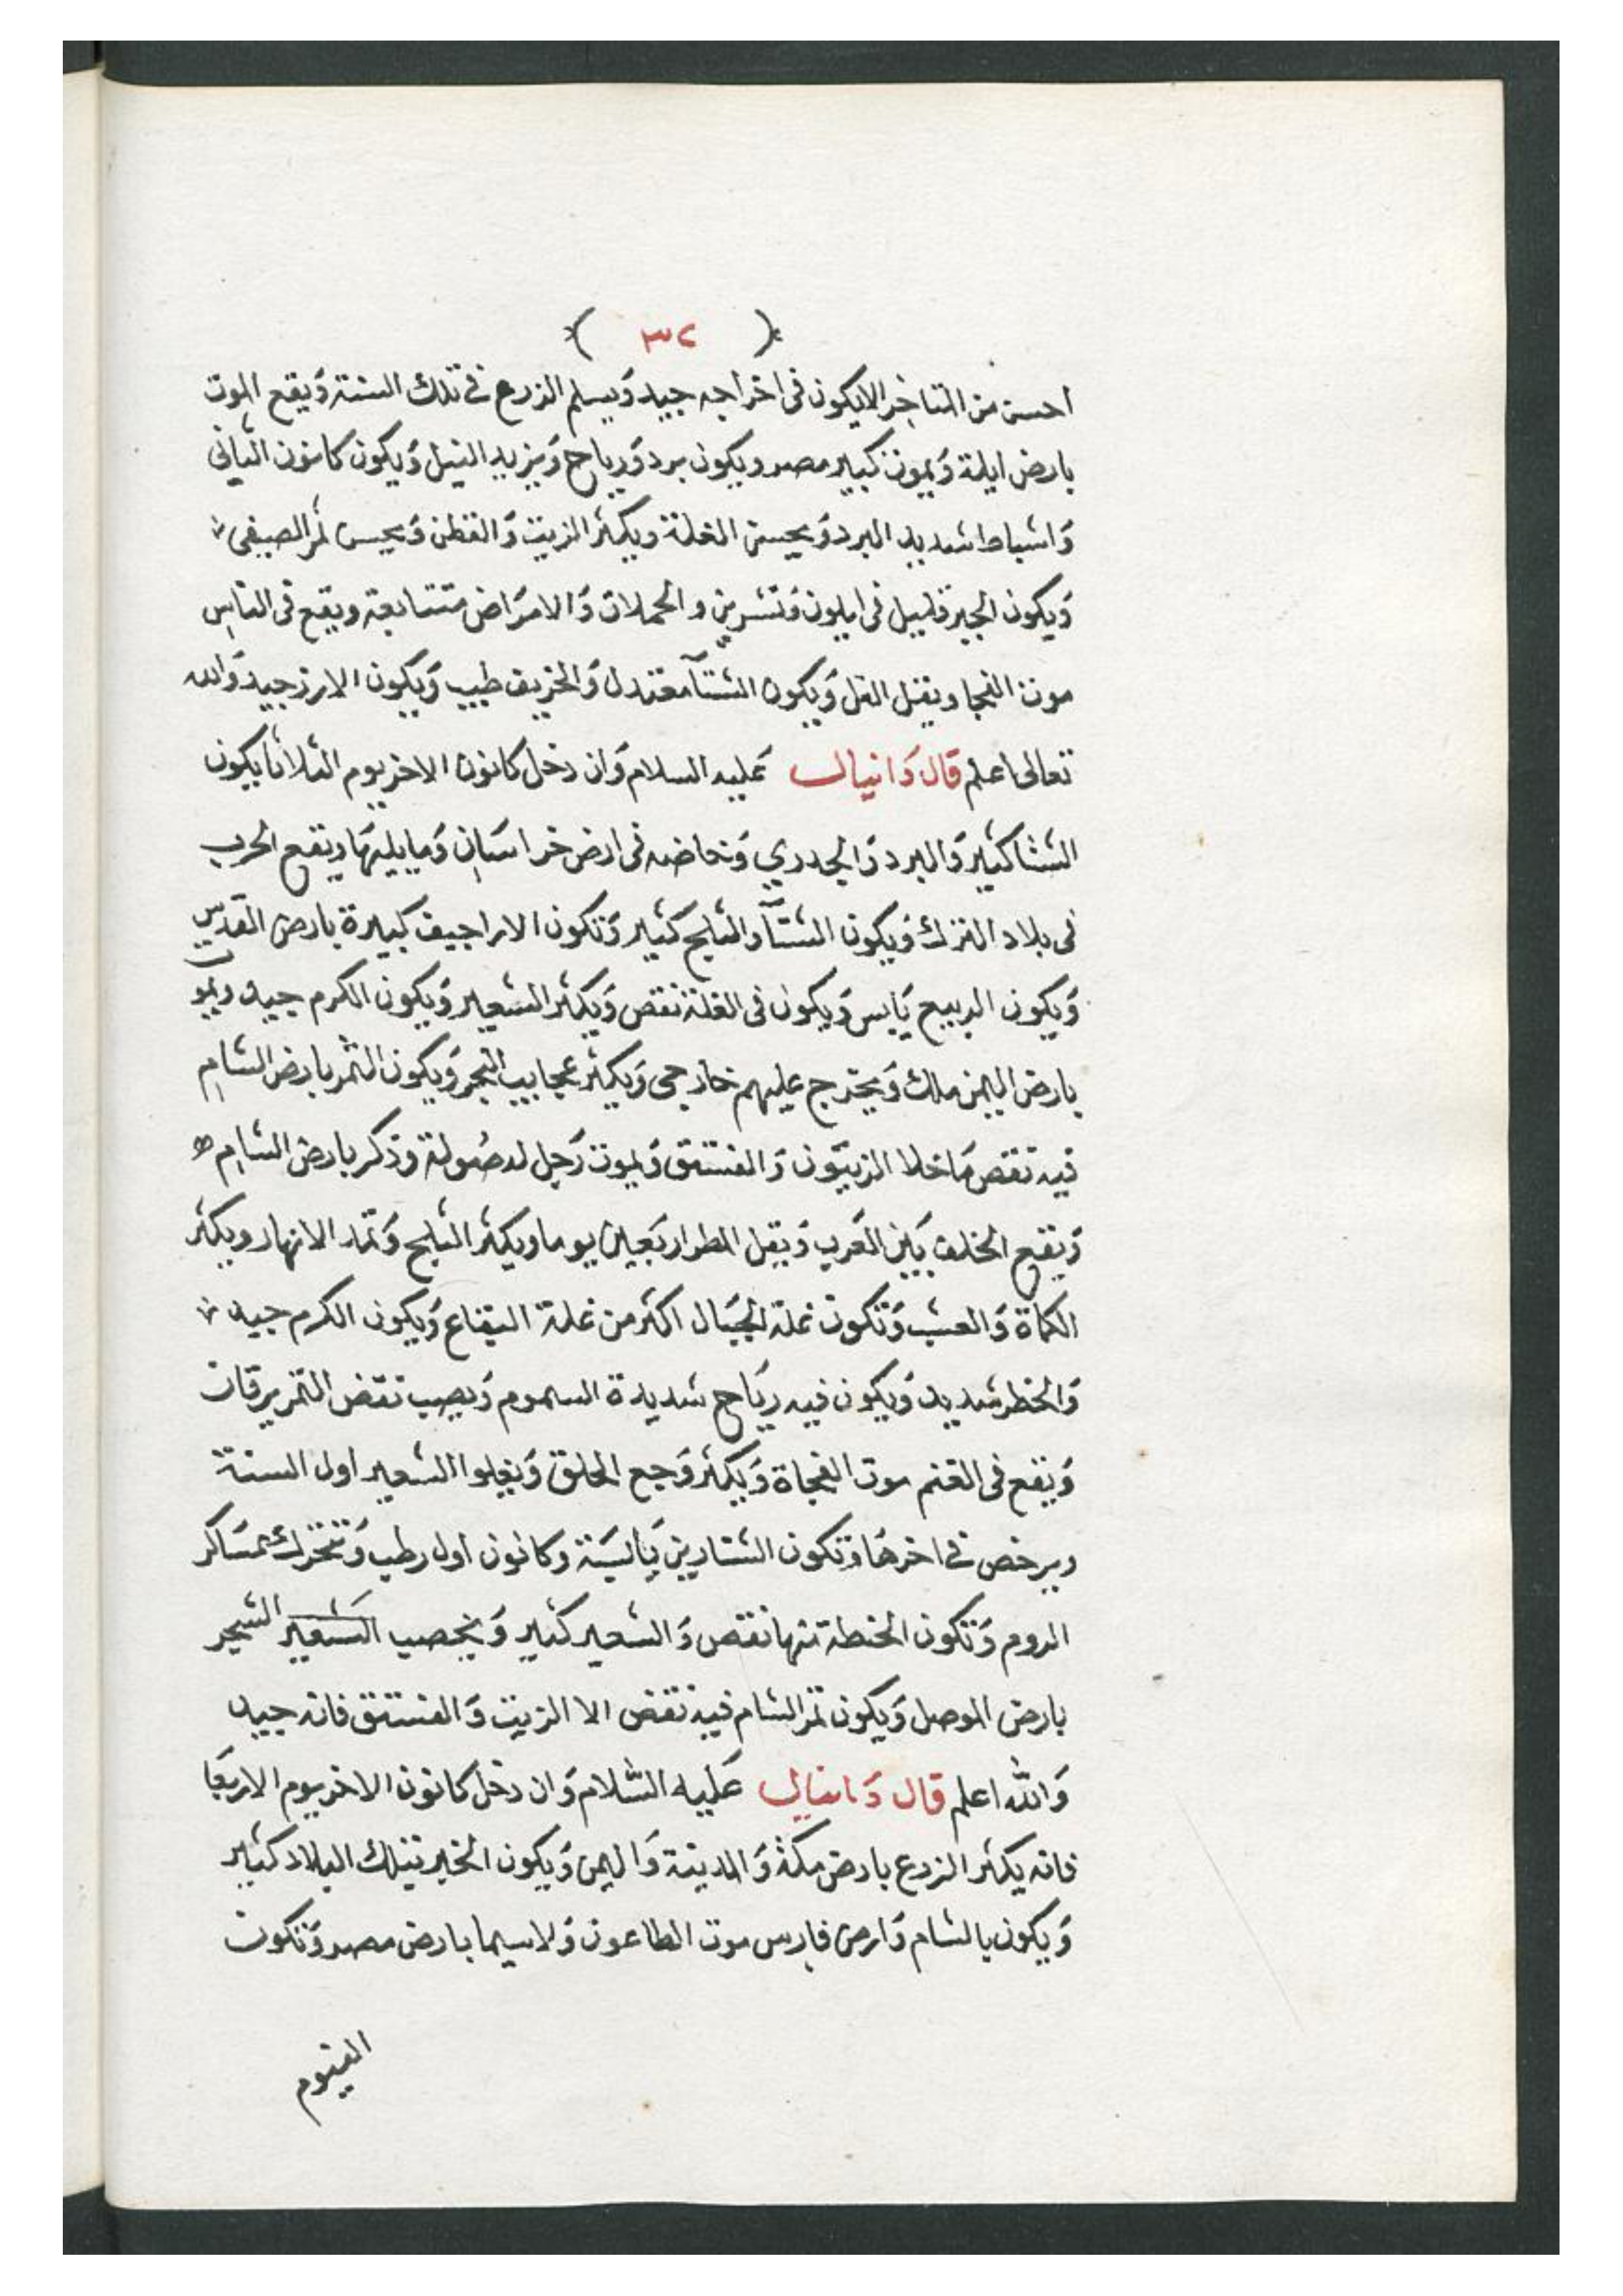 ( ٣٢ )
احسن من المتاخر الايكون فى اخراجه جيد وَيسلم الزرع فى تلك السنة وَيقع الموت
بارض ايلة وَيموت كبير مصر ويكون برد وَرياح وَيزيد النيل وَيكون كانون الثانى
وَاشباط شديد البرد وَيحسن الغلة ويكثر الزيت وَالقطن وَيحسن ثمر الصيفى
وَيكون الجير قليل فى ايلون وَتشرين والحملات وَالامرَاض متتابعة ويقع فى الناس
موت الفجا ويقتل القل وَيكون الشتآ معتدل وَالخريف طيب وَيكون الارز جيد وَالله
تعالى اعلم قال دَانيال عَليه السلام وَان دخل كانون الاخر يوم الثلاثا يكون
الشتا كثير وَالبرد وَالجدري وَخاضه فى ارض خراسَان وَمايليهَا ويقع الحرب
فى بلاد الترك وَيكون الشتآ والثلج كثير وَتكون الاراجيف كبيرة بارض القدس
وَيكون الربيع يَابس وَيكون فى الغلة نقص وَيكثر الشعير وَيكون الكرم جيد ويمو
بارض اليمن ملك وَيخرج عليهم خارجى وَيكثر عجايب البحر وَيكون الثمر بارض الشام
فيه نقص مَاخلا الزيتون وَالفستق وَيموت رَجل له صُولة وذكر بارض الشام
وَيقع الخلف بَين العَرب وَيقل المطر اربَعين يوما ويكثر الثلج وَتمد الانهار ويكثر
الكماة وَالعشب وَتكون غلة الجبَال اكثر من غلة البقاع وَيكون الكرم جيد
وَالخطر شديد وَيكون فيه ريَاح شديدة السموم وَيصيب نقض الثمر يرقات
وَيقع فى الغنم موت الفجاة وَيكثر وَجع الحلق وَيغلوا الشعير اول السنة
ويرخص فى اخرهَا وَتكون التشارين يَابسَة وكانون اول رطب وَتتحرك عسَاكر
الروم وَتكون الحنطة فيها نقص وَالشعير كثير وَيخصب الشعير الشجر
بارض الموصل وَيكون ثمر الشام فيه نقض الا الزيت وَالفستق فانه جيد
وَالله اعلم قال دَانيال عَليه السَّلام وَان دخل كانون الاخر يوم الاربعَا
فانه يكثر الزرع بارض مكة وَالمدينة وَاليمن وَيكون الخير بتلك البلاد كثير
وَيكون بالشام وَارض فارس موت الطاعون وَلاسيما بارض مصر وَتكون
الفيوم